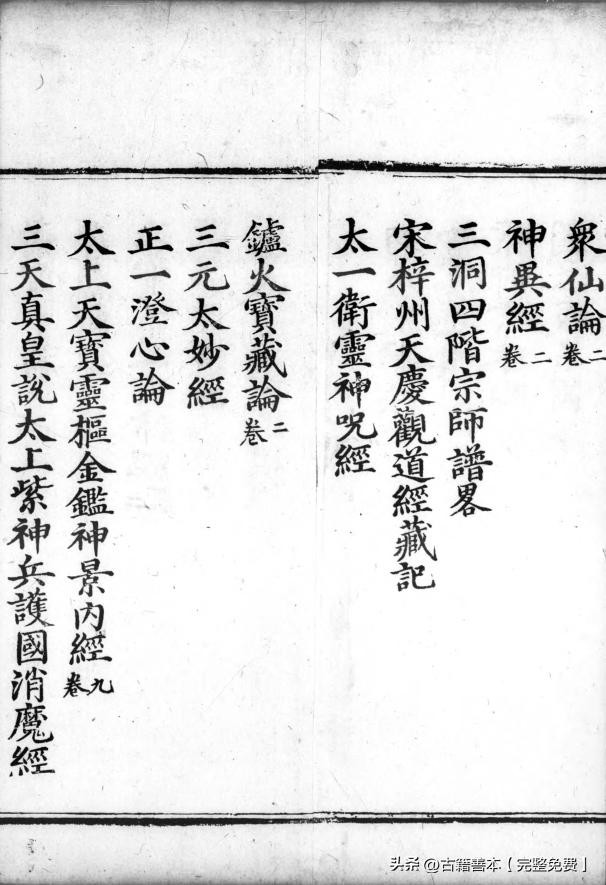 衆仙論二卷
神異經二卷
三洞四階宗師譜畧
宋梓州天慶觀道經藏記
太一衛靈神呪經
鑪火寶藏論二卷
三元太妙經
正一澄心論
太上天寶靈樞金鑑神景內經九卷
三天真皇說太上紫神兵護國消魔經
头条 @古籍善本【完整免费】